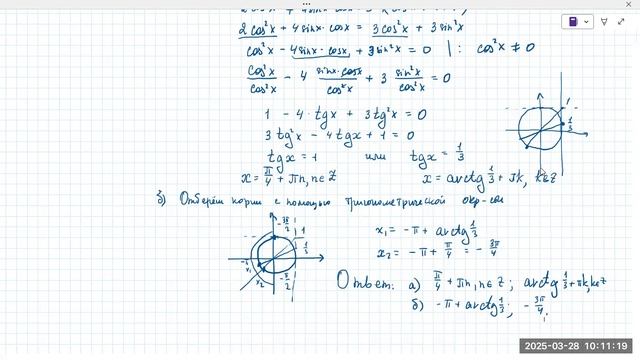 2cos²x + 4sinx·cosx = 3cos²x + 3sin²x
cos²x - 4sinx·cosx + 3sin²x = 0 | : cos²x ≠ 0
cos²x/cos²x - 4 sinx·cosx/cos²x + 3 sin²x/cos²x = 0
1 - 4·tgx + 3tg²x = 0
3tg²x - 4tgx + 1 = 0
tgx = 1 или tgx = 1/3
x = π/4 + πn, n∈Z x = arctg 1/3 + πk, k∈Z
1
1/3
б) Отберём корни с помощью тригонометрической окр-сти
-3π/2
1
1/3
-π
x₁
x₂
-π/2
x₁ = -π + arctg 1/3
x₂ = -π + π/4 = -3π/4
Ответ: а) π/4 + πn, n∈Z; arctg 1/3 + πk, k∈Z
б) -π + arctg 1/3; -3π/4.
2025-03-28 10:11:19